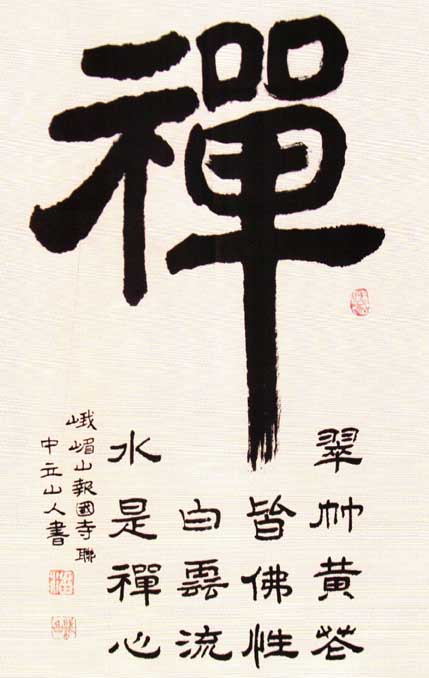 禪
翠竹黃花
皆佛性
白雲流
水是禪心
峨嵋山報國寺聯
中立山人書